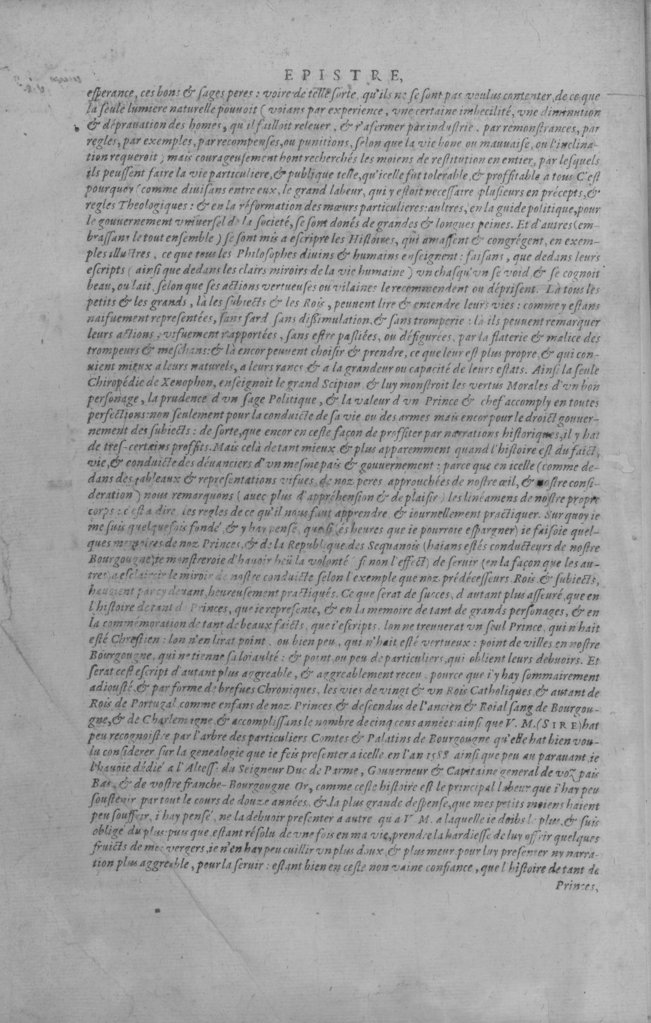 EPISTRE,
esperance, ces bons & sages peres : voire de telle sorte, qu'ils ne se sont pas voulus contenter, de ce que
la seule lumiere naturelle pouuoit ( voians par experience, vne certaine imbecilité, vne diminution
& déprauation des homes, qu'il failloit releuer, & r'afermer par industrie, par remonstrances, par
regles, par exemples, par recompenses, ou punitions, selon que la vie bone ou mauuaise, ou l'inclina
tion requeroit ) mais courageusement hont recherchés les moiens de restitution en entier, par lesquels
ils peussent faire la vie particuliere, & publique telle, qu'icelle fut tolerable, & proffitable à tous C'est
pourquey ( comme diuisans entre eux, le grand labeur, qui y estoit necessaire plusieurs en préceptes, &
regles Theologiques : & en la réformation des mœurs particulieres: aultres, en la guide politique, pour
le gouuernement vniuersel de la societé, se sont donés de grandes & longues peines. Et d'autres (em-
brassans le tout ensemble ) se sont mis a escripre les Histoires, qui amassent & congrégent, en exem-
ples illustres, ce que tous les Philosophes diuins & humains enseignent : faisans, que dedans leurs
escripts ( ainsi que dedans les clairs miroirs de la vie humaine ) vn chasqu'vn se void & se cognoit
beau, ou lait, selon que ses actions vertueuses ou vilaines le recommendent ou déprisent. Là tous les
petits & les grands, là les subiects & les Rois, peuuent lire & entendre leurs vies : comme y estans
naifuement representées, sans fard sans dissimulation, & sans tromperie : là ils peuuent remarquer
leurs actions : vifuement r'apportées, sans estre palliées, ou défigurées, par la flaterie & malice des
trompeurs & meschans: & là encor peuuent choisir & prendre, ce que leur est plus propre, & qui con
uient mieux a leurs naturels, a leurs rancs & a la grandeur ou capacité de leurs estats. Ainsi la seule
Chiropédie de Xenophon, enseignoit le grand Scipion & luy monstroit les vertus Morales d'vn bon
personage, la prudence d'vn sage Politique, & la valeur d'vn Prince & chef accomply en toutes
perfections: non seulement pour la conduicte de sa vie ou des armes mais encor pour le droict gouuer-
nement des subiects : de sorte, que encor en ceste façon de proffiter par narrations historiques, il y hat
de tres-certains proffits. Mais celà de tant mieux & plus apparemment quand l'histoire est du faict,
vie, & conduicte des déuanciers d'vn mesme païs & gouuernement : parce que en icelle ( comme de-
dans des tableaux & representations vifues, de noz peres approuchées de nostre œil, & nostre consi-
deration ) nous remarquons ( auec plus d'appréhension & de plaisir ) les linéamens de nostre propre
corps : c'est a dire, les regles de ce qu'il nous faut apprendre, & iournellement practiquer. Sur quoy ie
me suis quelquefois fondé, & y hay pensé, que si és heures que ie pourroie espargner) ie faisoie quel-
ques memoires de noz Princes, & de la Republique des Sequanois (haians estés conducteurs de nostre
Bourgougne) ie monstreroie d'hauoir heü la volonté ( si non l'effect) de seruir (en la façon que les au-
tres) a esclaircir le miroir de nostre conduicte selon l'exemple que noz prédécesseurs Rois & subiects,
hauoient par cy deuant, heureusement practiqués. Ce que serat de succes, d'autant plus asseuré, que en
l'histoire de tant de Princes, que ie represente, & en la memoire de tant de grands personages, & en
la commémoration de tant de beaux faicts, que i'escripts, lon ne treuuerat vn seul Prince, qui n'hait
esté Chrestien : lon n'en lirat point, ou bien peu, qui n'hait esté vertueux : point de villes en nostre
Bourgougne, qui ne tienne sa loiaulté : & point, ou peu de particuliers, qui oblient leurs debuoirs. Et
serat cest escript d'autant plus aggreable, & aggreablement receu, pource que i'y hay sommairement
adiousté, & par forme de brefues Chroniques, les vies de vingt & vn Rois Catholiques, & autant de
Rois de Portugal comme enfans de noz Princes & descendus de l'ancien & Roial sang de Bourgou-
gne, & de Charlemagne & accomplissans le nombre de cinq cens années: ainsi que V. M. (SIRE) hat
peu recognoistre par l'arbre des particuliers Comtes & Palatins de Bourgougne qu'elle hat bien vou-
lu considerer sur la genealogie que ie feis presenter a icelle en l'an 1588 ainsi que peu au parauant, ie
l'hauoie dédié a l'Altesse du Seigneur Duc de Parme, Gouuerneur & Capitaine general de voz païs
Bas, & de vostre franche-Bourgougne Or, comme ceste histoire est le principal labeur que i'hay peu
soustenir par tout le cours de douze années, & la plus grande despense, que mes petits moiens haient
peu souffrir, i'hay pensé, ne la debuoir presenter a autre qu'a V. M. a laquelle ie doibs le plus, & suis
obligé du plus: puis que estant résolu de vne fois en ma vie, prendre la hardiesse de luy offrir quelques
fruicts de mes vergers, ie n'en hay peu cuillir vn plus doux, & plus meur, pour luy presenter ny narra-
tion plus aggreable, pour la seruir : estant bien en ceste non vaine confiance, que l'histoire de tant de
Princes,